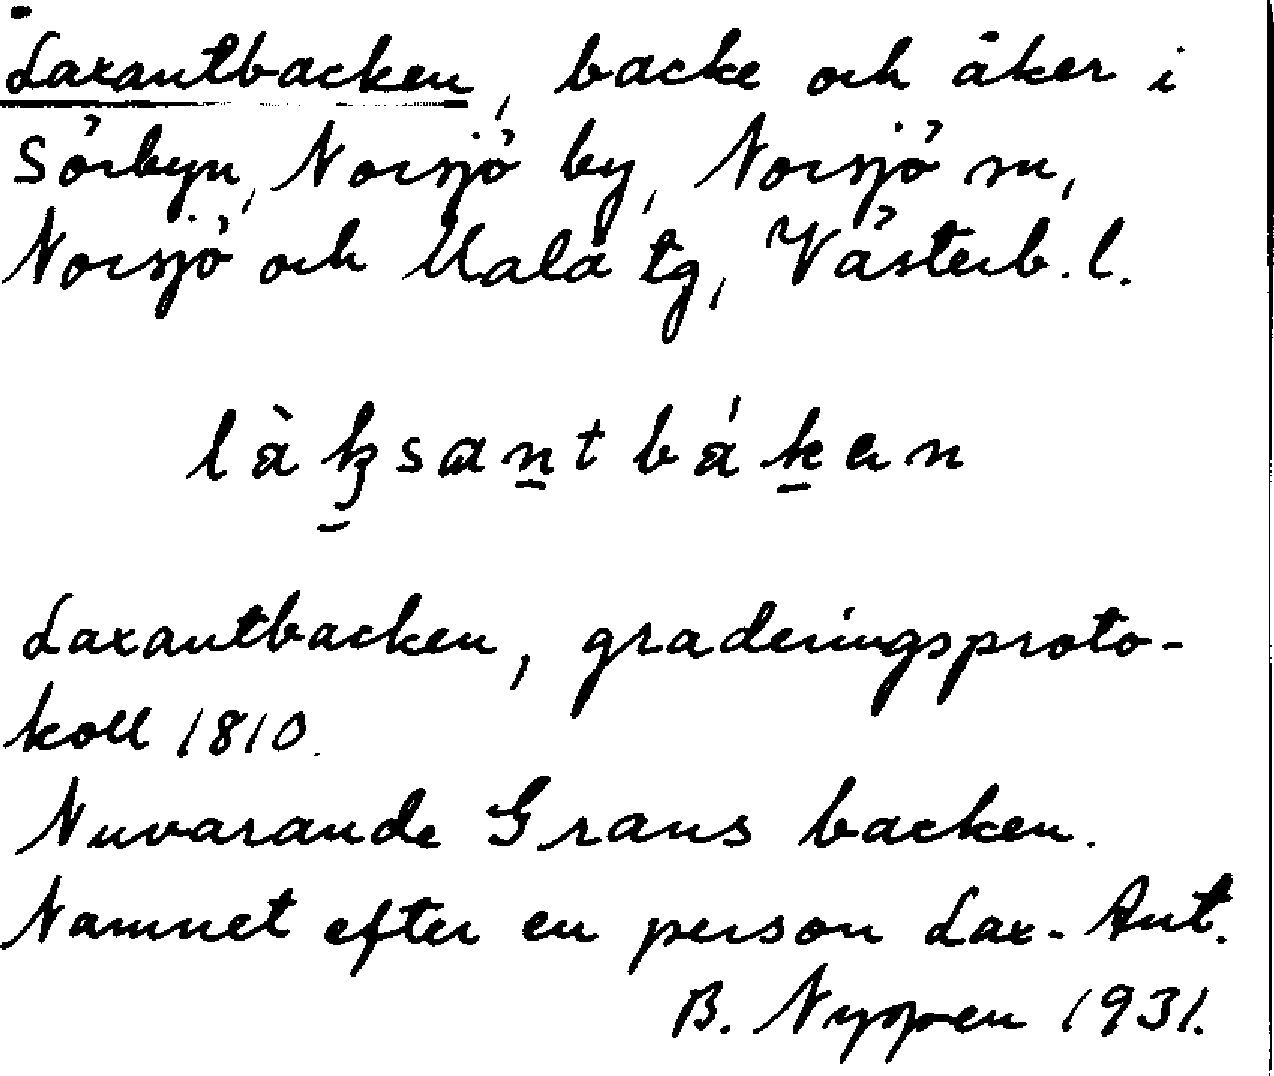 Laxantbacken, backe och åker i
Sörbyn, Norsjö by, Norsjö sn,
Norsjö och Malå tg, Västerb. l.
làk̠santbák̠en
Laxantbacken, graderingsproto-
koll 1810.
Nuvarande Grans backen.
Namnet efter en person Lax-Ant.
B. Nyppen 1931.